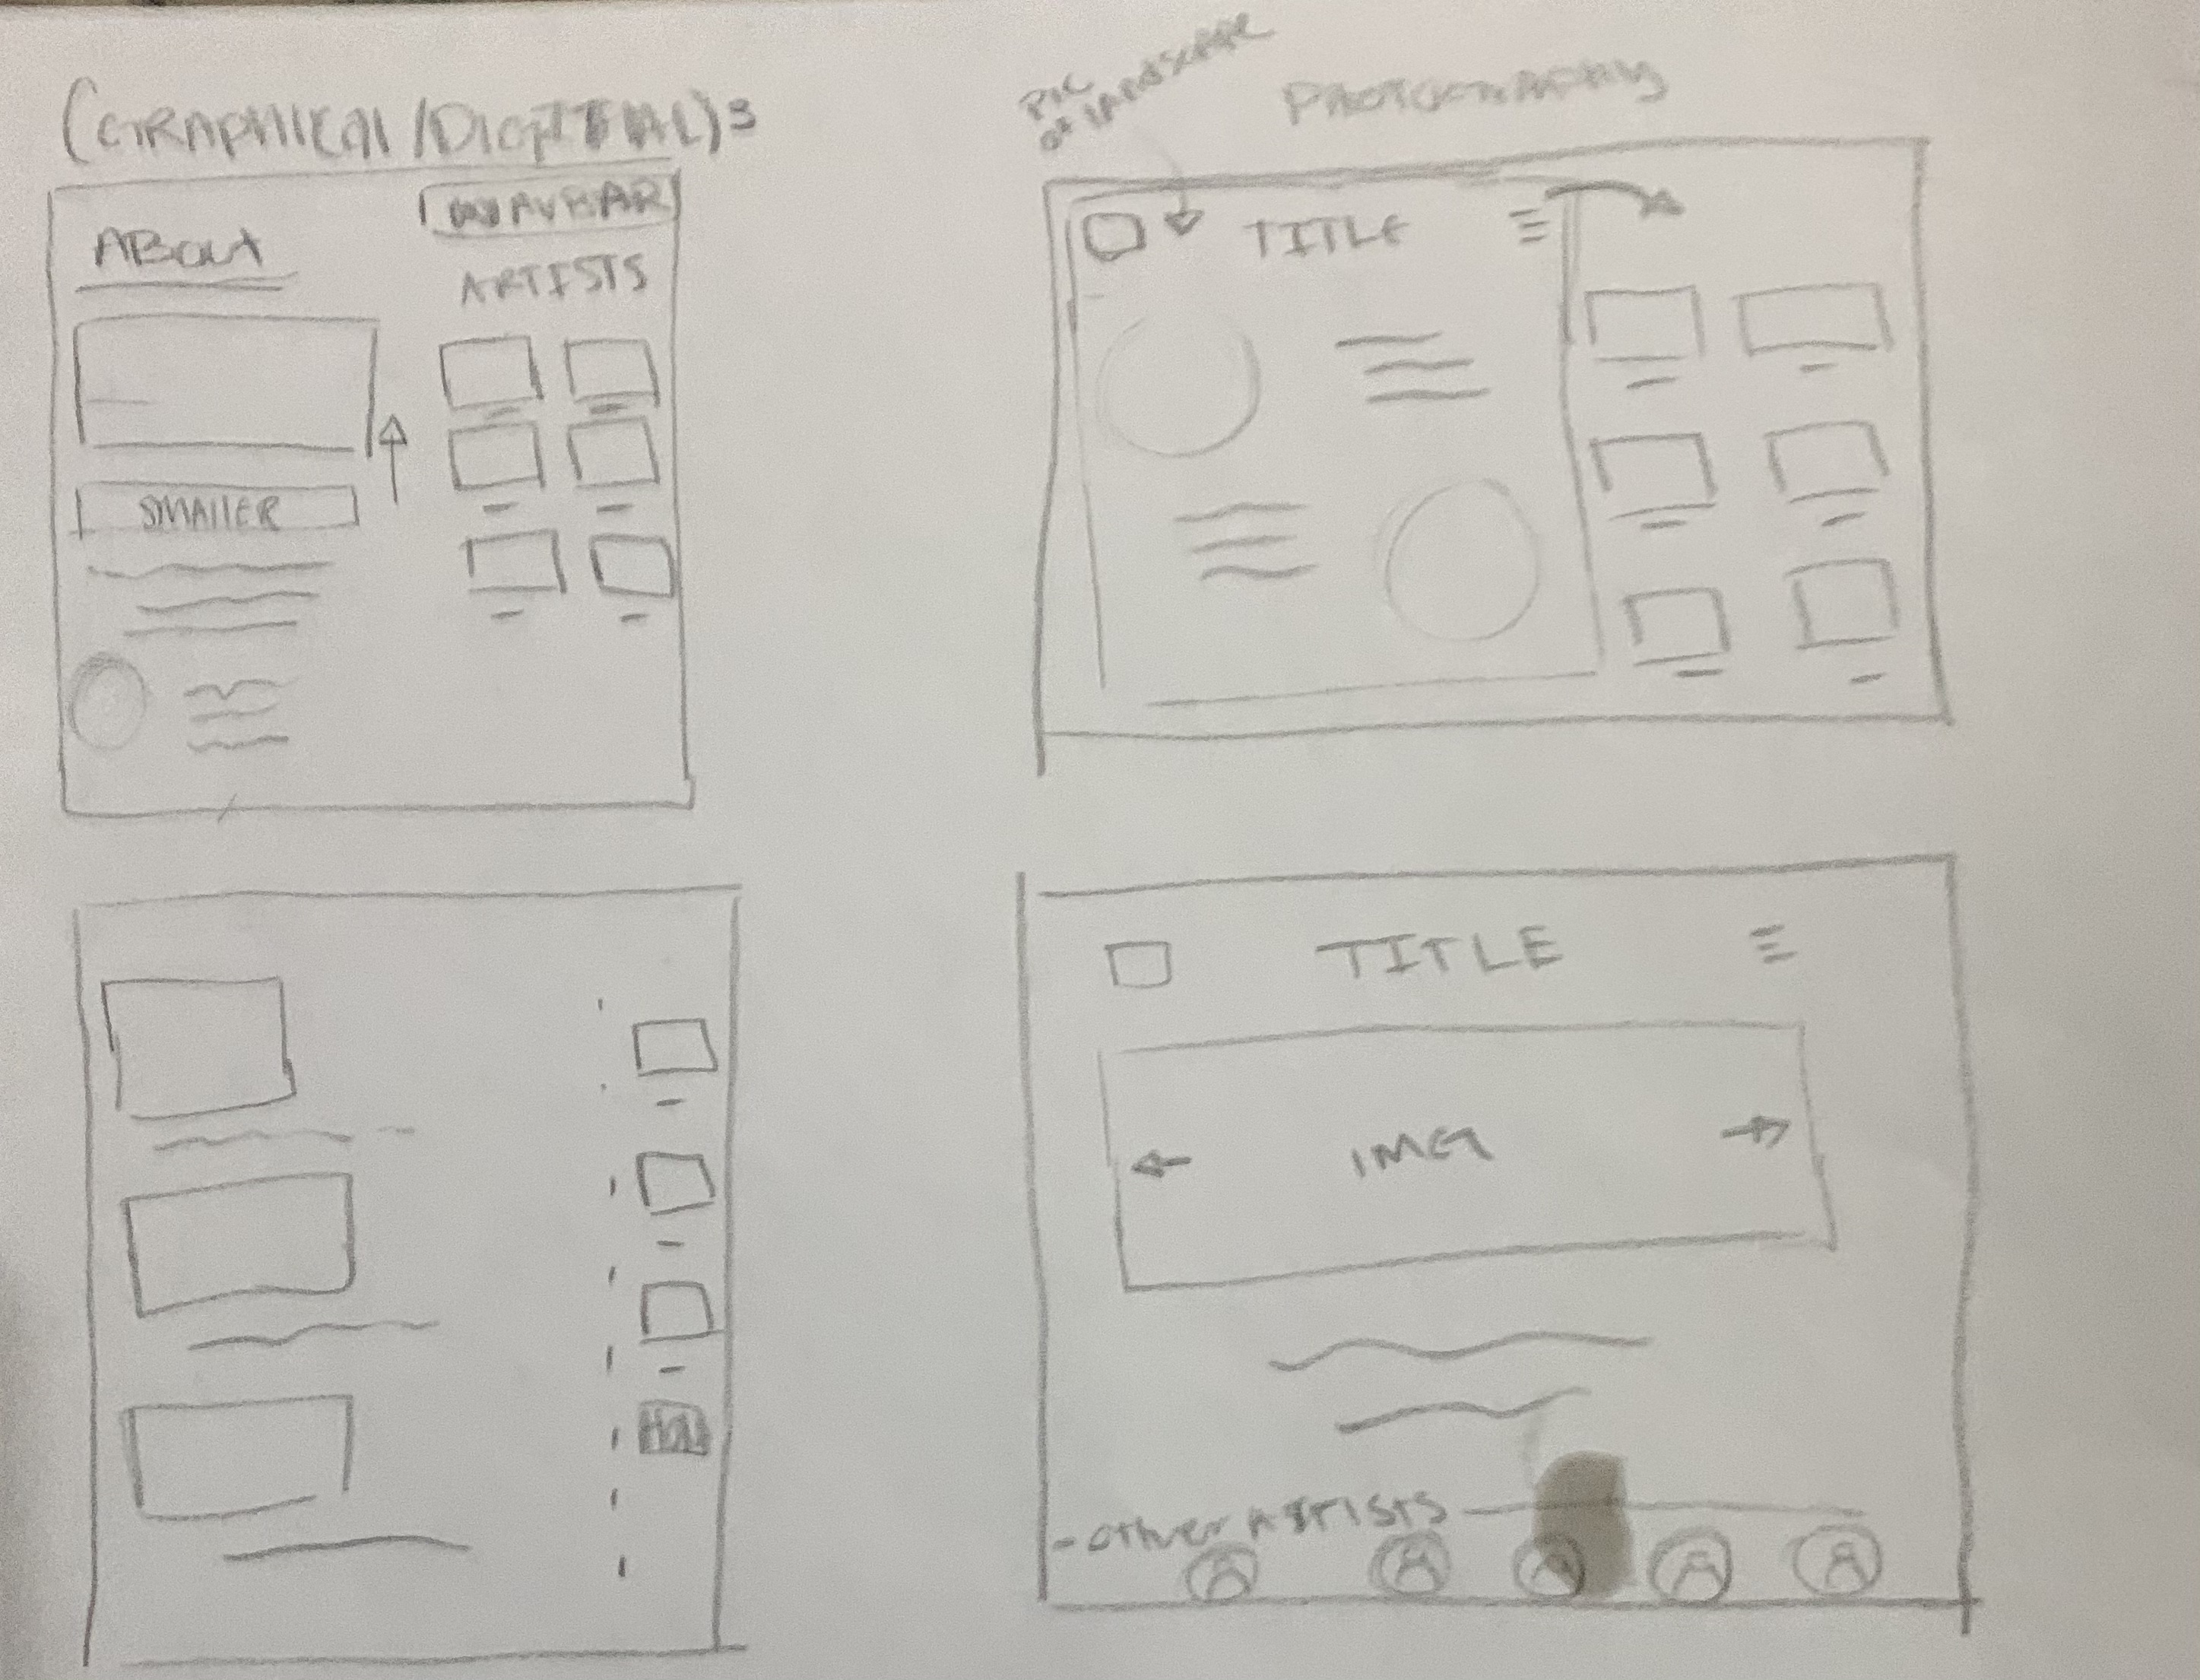 (GRAPHICAL/DIGITAL)3
NAVBAR
ABOUT
ARTISTS
SMALLER
PIC
OF LANDSCAPE
PHOTOGRAPHY
TITLE
TITLE
IMG
- other ARTISTS